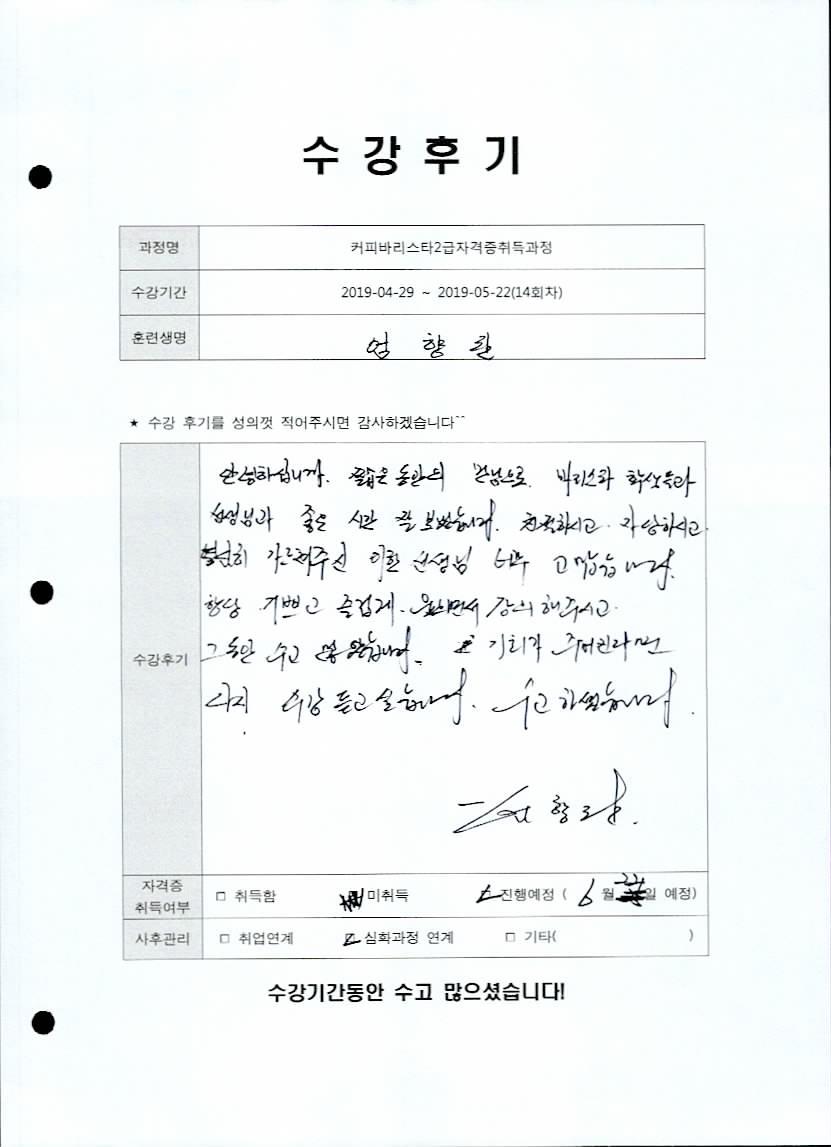 수강후기
과정명 커피바리스타2급자격증취득과정
수강기간 2019-04-29 ~ 2019-05-22(14회차)
훈련생명 엄 향
★ 수강 후기를 성의껏 적어주시면 감사하겠습니다^^
수강후기
안녕하십니까. 짧은 동안의 만남으로.
선생님과 좋은 시간 잘 보냈습니다. 친절하시고. 자상하시고.
가르쳐주신 선생님 너무 고맙습니다.
항상 기쁘고 즐겁게. 웃으면서 강의 해주시고.
그동안 수고 기회가 주어진다면
수강 듣고 싶습니다. 수고 하셨습니다.
자격증 취득여부 □ 취득함 미취득 □ 진행예정 ( 6 월 22 일 예정)
사후관리 □ 취업연계 □ 심화과정 연계 □ 기타( )
수강기간동안 수고 많으셨습니다!